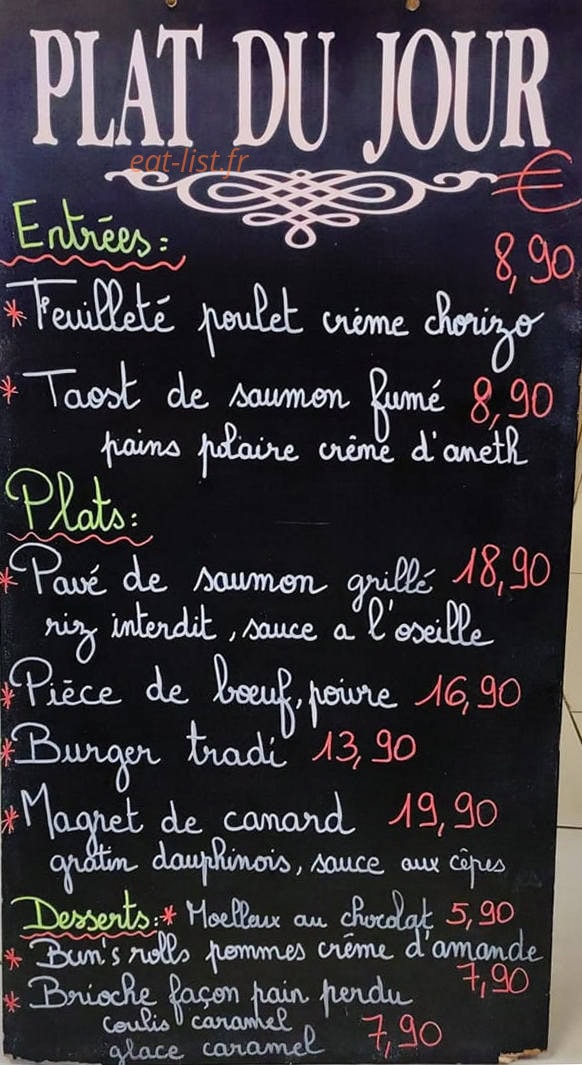 PLAT DU JOUR
eat-list.fr
€
Entrées:
8,90
* Feuilleté poulet crème chorizo
* Taost de saumon fumé 8,90
pains polaire crème d'aneth
Plats:
* Pavé de saumon grillé 18,90
riz interdit, sauce a l'oseille
* Pièce de boeuf, poivre 16,90
* Burger tradi 13,90
* Magret de canard 19,90
gratin dauphinois, sauce aux cêpes
Desserts: * Moelleux au chocolat 5,90
* Bun's rolls pommes crème d'amande
7,90
* Brioche façon pain perdu
coulis caramel
7,90
glace caramel